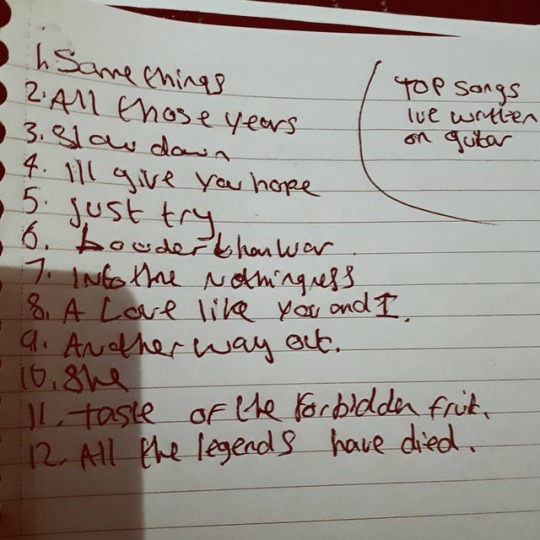 1. Same things
2. All those years
3. Slow down
4. I'll give you hope
5. Just try
6. Louder than war
7. Into the Nothingness
8. A Love like you and I.
9. Another way out.
10. She
11. taste of the forbidden fruit.
12. All the legends have died.
Top songs
ive written
on guitar